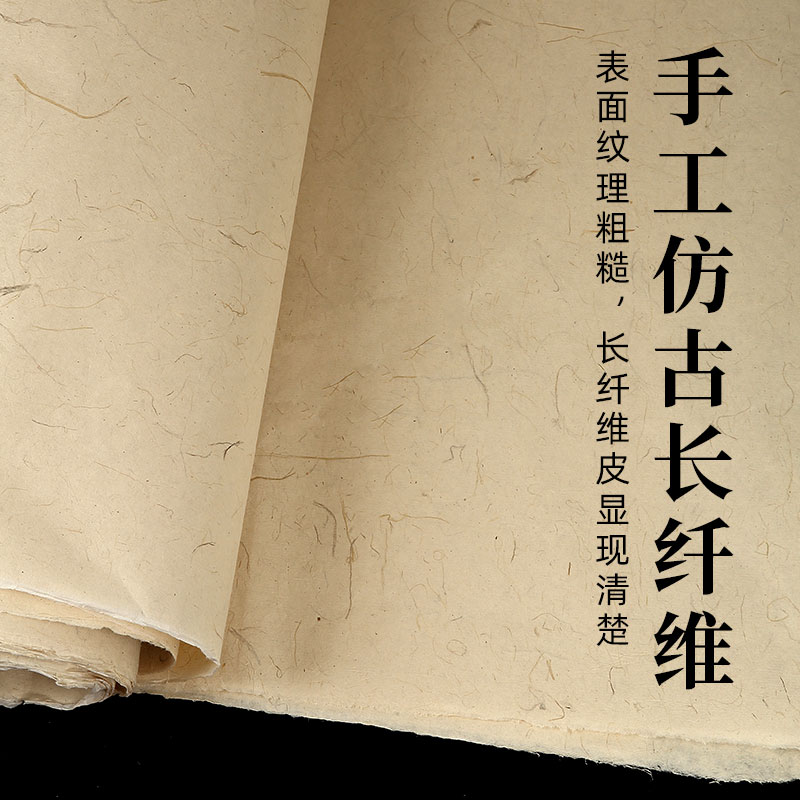 手工仿古长纤维
表面纹理粗糙，长纤维皮显现清楚